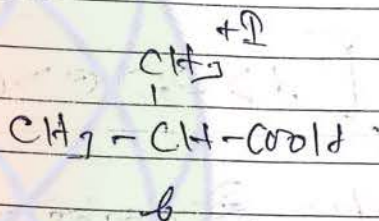 +I
CH3
|
CH3 - CH - COOH
b